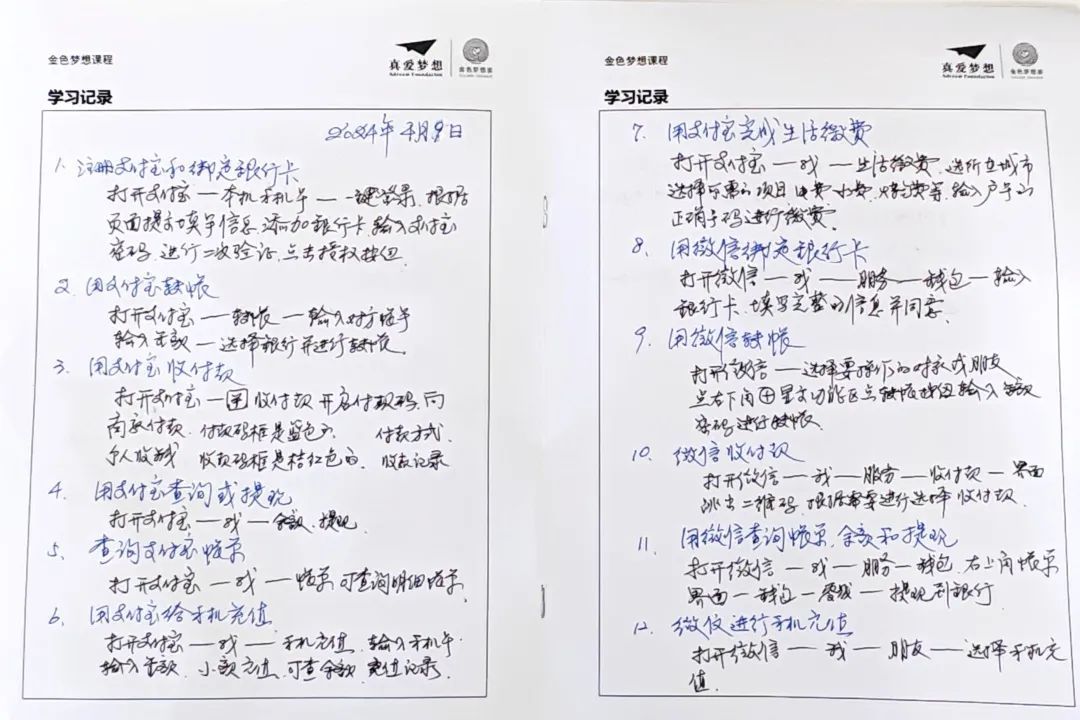 金色梦想课程
真爱梦想
Adream Foundation
金色梦想家
学习记录
2024年4月9日
1. 注册支付宝和绑定银行卡
打开支付宝—本机手机号—一键登录,根据
页面提示填写信息,添加银行卡,输入支付宝
密码,进行二次验证,点击授权按钮
2. 用支付宝转帐
打开支付宝—转帐—输入对方账号
输入金额—选择银行并进行转帐。
3. 用支付宝收付款
打开支付宝— 收付款 开启付款码,向
商家付款,付款码框是蓝色的 付款方式,
个人收钱 收款码框是桔红色的, 收款记录
4. 用支付宝查询或提现
打开支付宝—我—余额,提现
5、查询支付宝帐单
打开支付宝—我—帐单,可查询明细帐单
6、用支付宝给手机充值
打开支付宝—我—手机充值,输入手机号
输入金额,小额充值,可查余额,充值记录.
金色梦想课程
真爱梦想
Adream Foundation
金色梦想家
学习记录
7. 用支付宝完成生活缴费
打开支付宝—我—生活缴费,选所在城市
选择所需的项目 电费 水费 等,输入户号
正确号码进行缴费.
8、用微信绑定银行卡
打开微信—我—服务—钱包—输入
银行卡、填写完整的信息并同意.
9、用微信转帐
打开微信—选择要操作的对象或朋友
点右下角⊕显示功能区点转帐按钮输入金额
密码进行转帐.
10、微信收付款
打开微信—我—服务—收付款—界面
跳出二维码,根据需要进行选择收付款.
11、用微信查询帐单,余额和提现
打开微信—我—服务—钱包,右上角帐单
界面—钱包—零钱—提现到银行.
12、微信进行手机充值
打开微信—我—服务—选择手机充
值.